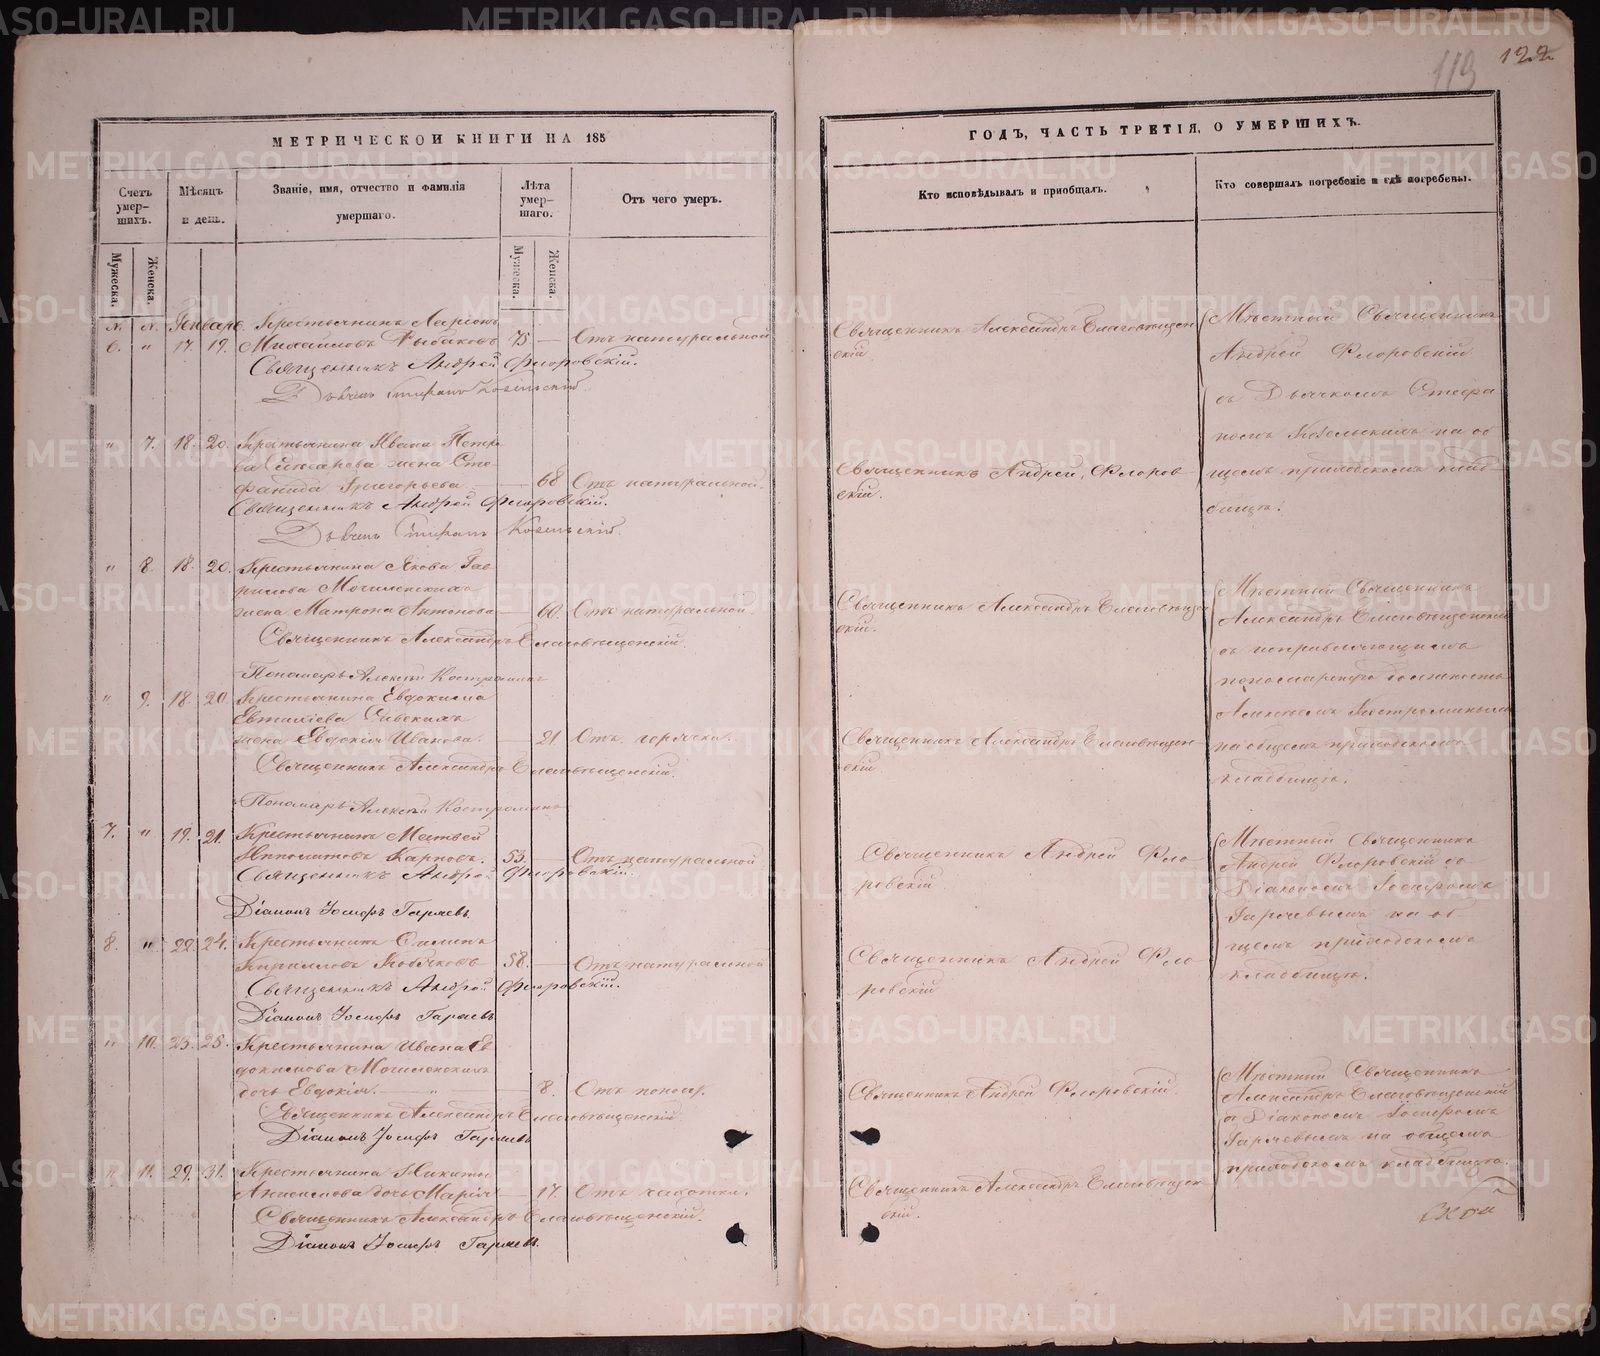 119
122
МЕТРИЧЕСКОЙ КНИГИ НА 185
Счетъ умер-
шихъ.
Мѣсяцъ
и день.
Званіе, имя, отчество и фамилія
умершаго.
Лѣта
умер-
шаго.
Отъ чего умеръ.
Мужеска.
Женска.
Мужеска.
Женска.
N. N. Январь. Крестьянинъ Ларіонъ
6. " 17. 19. Михайловъ Рыбаковъ 75. — Отъ натуральной
Священникъ Андрей Флоровскій.
" 7. 18. 20. Крестьянина Ивана Петро
ва жена Сте
фанида Григорьева 68 Отъ натуральной.
Священникъ Андрей Флоровскій.
" 8. 18. 20. Крестьянина Якова Гав
рилова Могиленскихъ
жена Матрона Антонова — 60. Отъ натуральной.
Священникъ Александръ Благовѣщенскій.
Пономарь Алексѣй Костроминъ
" 9. 18. 20. Крестьянина Евдокима
Евтихіева
жена Евдокія Иванова. — 21 Отъ горячки.
Священникъ Александръ Благовѣщенскій.
Пономарь Алексѣй Костроминъ
7. " 19. 21. Крестьянинъ Матвей
Ипполитовъ Карповъ. 53. — Отъ натуральной
Священникъ Андрей Флоровскій.
Діаконъ Іосифъ Гаряевъ.
8. " 22. 24. Крестьянинъ
Кириловъ 58. — Отъ натуральной
Священникъ Андрей Флоровскій.
Діаконъ Іосифъ Гаряевъ
" 10. 23. 25. Крестьянина Ивана Ев
докимова Могиленскихъ
дочь Евдокія. — " — 8. Отъ поносу.
Священникъ Александръ Благовѣщенскій.
Діаконъ Іосифъ Гаряевъ
" 11. 29. 31. Крестьянина Никиты
Анисимова дочь Марія — 17. Отъ чахотки.
Священникъ Александръ Благовѣщенскій.
Діаконъ Іосифъ Гаряевъ.
ГОДЪ, ЧАСТЬ ТРЕТІЯ, О УМЕРШИХЪ.
Кто исповѣдывалъ и пріобщалъ.
Кто совершалъ погребеніе и гдѣ погребены.
Священникъ Александръ Благовѣщен
скій.
Священникъ Андрей Флоров
скій.
Священникъ Александръ Благовѣщен
скій.
Священникъ Александръ Благовѣщен
скій.
Священникъ Андрей Фло
ровскій
Священникъ Андрей Фло
ровскій
Священникъ Андрей Флоровскій.
Священникъ Александръ Благовѣщен
скій.
Мѣстный Священникъ
Андрей Флоровскій
съ Дьячкомъ Стефа
номъ Козельскимъ на об
щемъ приходскомъ клад
бищѣ.
Мѣстный Священникъ
Александръ Благовѣщенскій
съ исправляющимъ
пономарскую должность
Алексѣемъ Костроминымъ
на общемъ приходскомъ
кладбищѣ.
Мѣстный Священникъ
Андрей Флоровскій со
Діакономъ Іосифомъ
Гаряевымъ на об
щемъ приходскомъ
кладбищѣ.
Мѣстный Священникъ
Александръ Благовѣщенскій
съ Діакономъ Іосифомъ
Гаряевымъ на общемъ
приходскомъ кладбищѣ.
METRIKI.GASO-URAL.RU